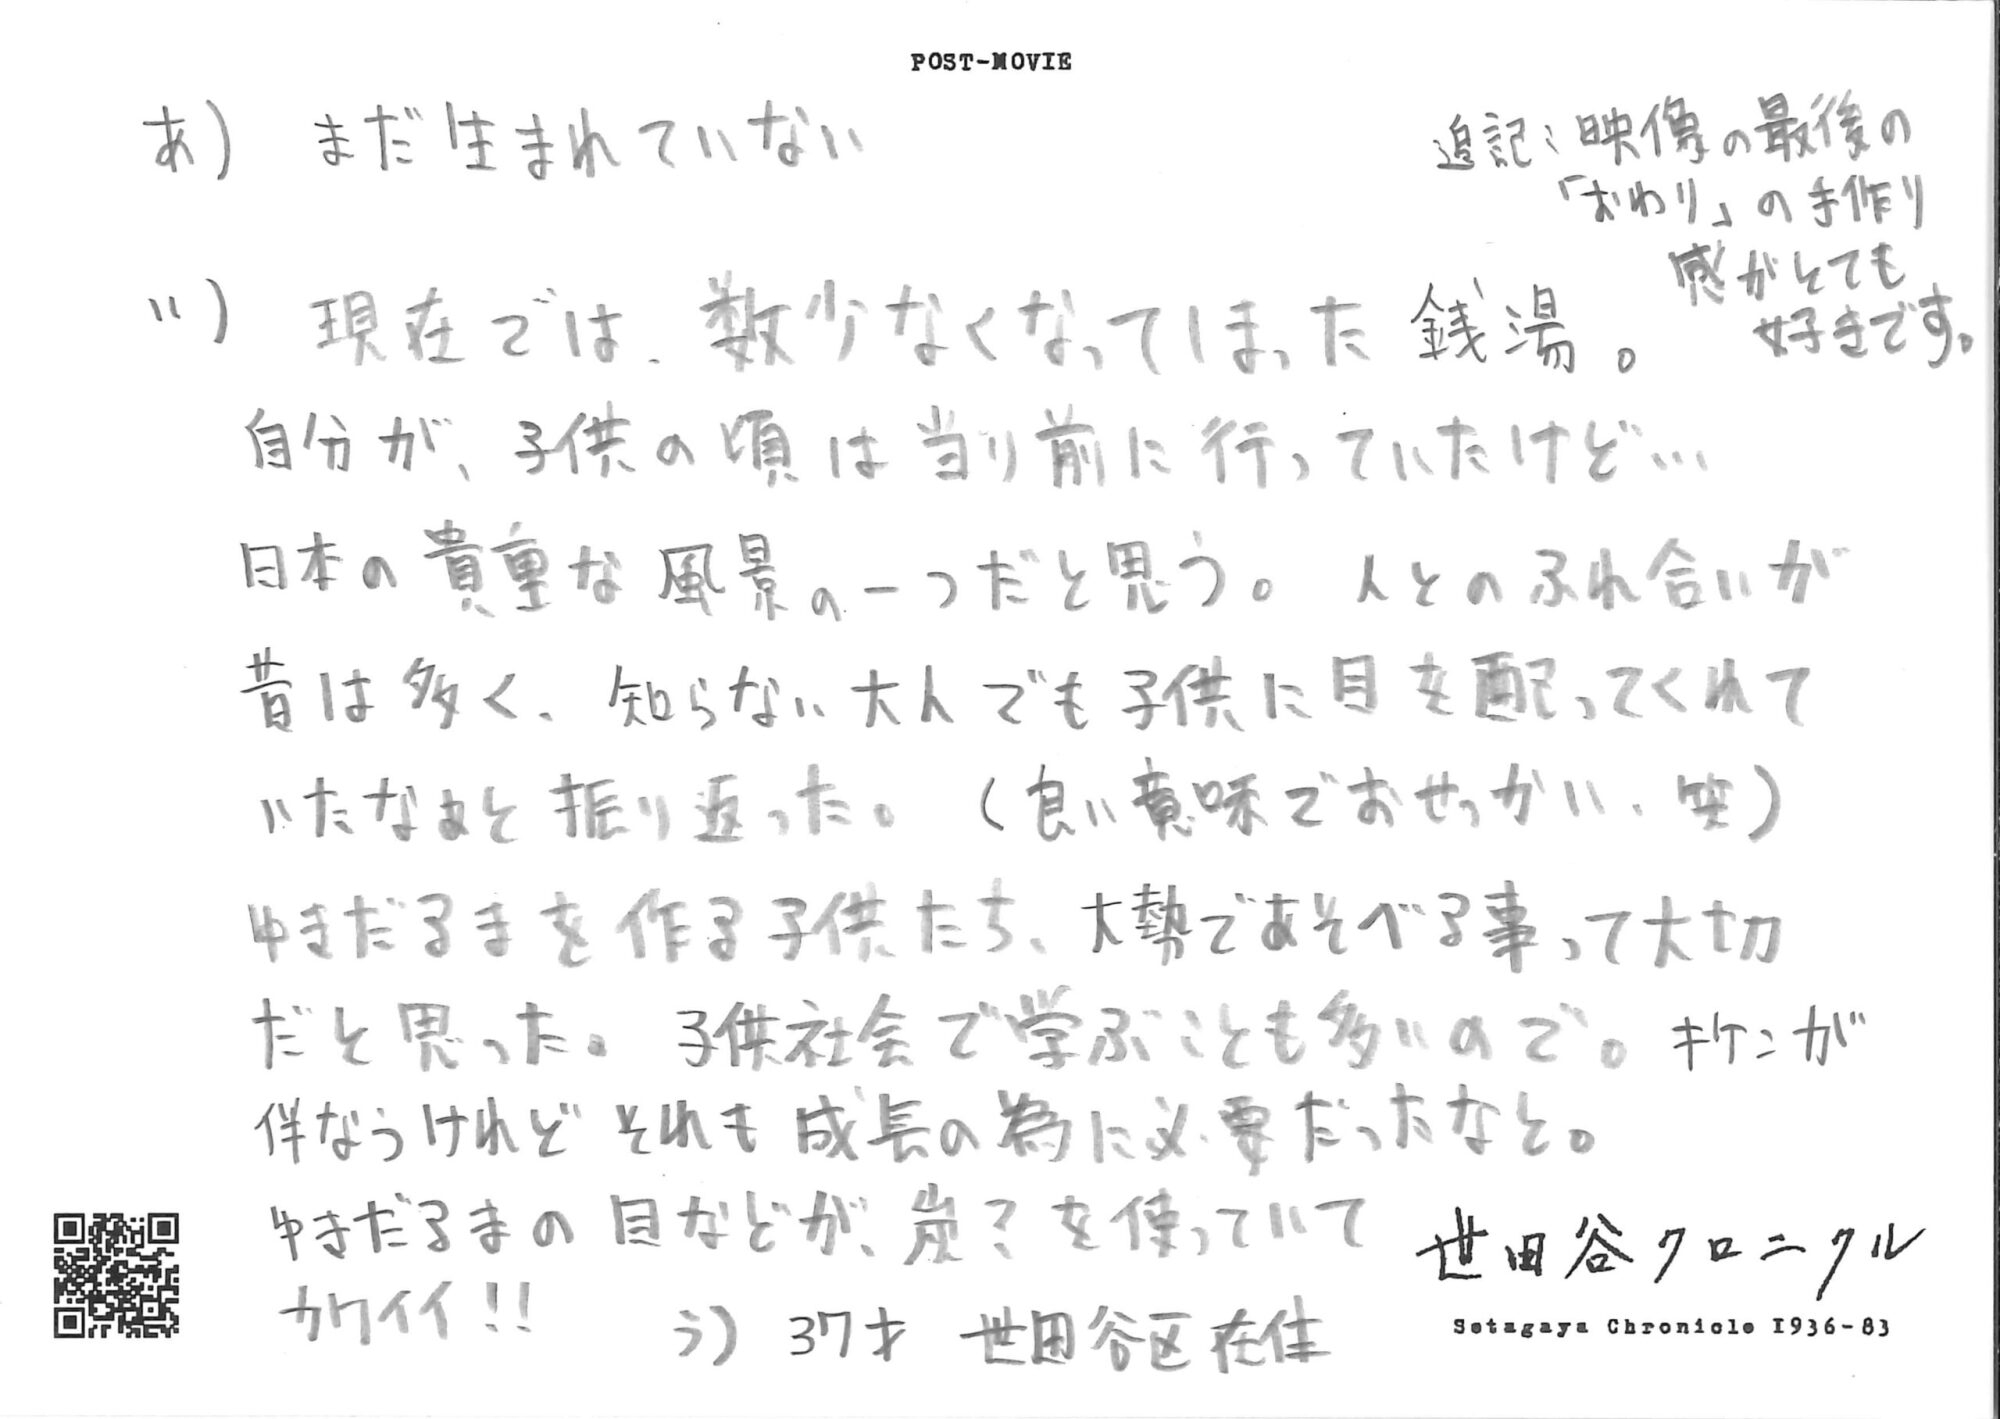 POST-MOVIE
あ) まだ生まれていない
追記:映像の最後の
「おわり」の手作り
感がとても
好きです。
い) 現在では、数少なくなってしまった銭湯。
自分が、子供の頃は当り前に行っていたけど…
日本の貴重な風景の一つだと思う。 人とのふれ合いが
昔は多く、知らない大人でも子供に目を配ってくれて
いたなぁと振り返った。(良い意味でおせっかい、笑)
ゆきだるまを作る子供たち、大勢であそべる事って大切
だと思った。子供社会で学ぶことも多いので。キケンが
伴なうけれどそれも成長の為に必要だったなと。
ゆきだるまの目などが、炭?を使っていて
カワイイ!!
う) 37才 世田谷区在住
世田谷クロニクル
Setagaya Chronicle 1936-83